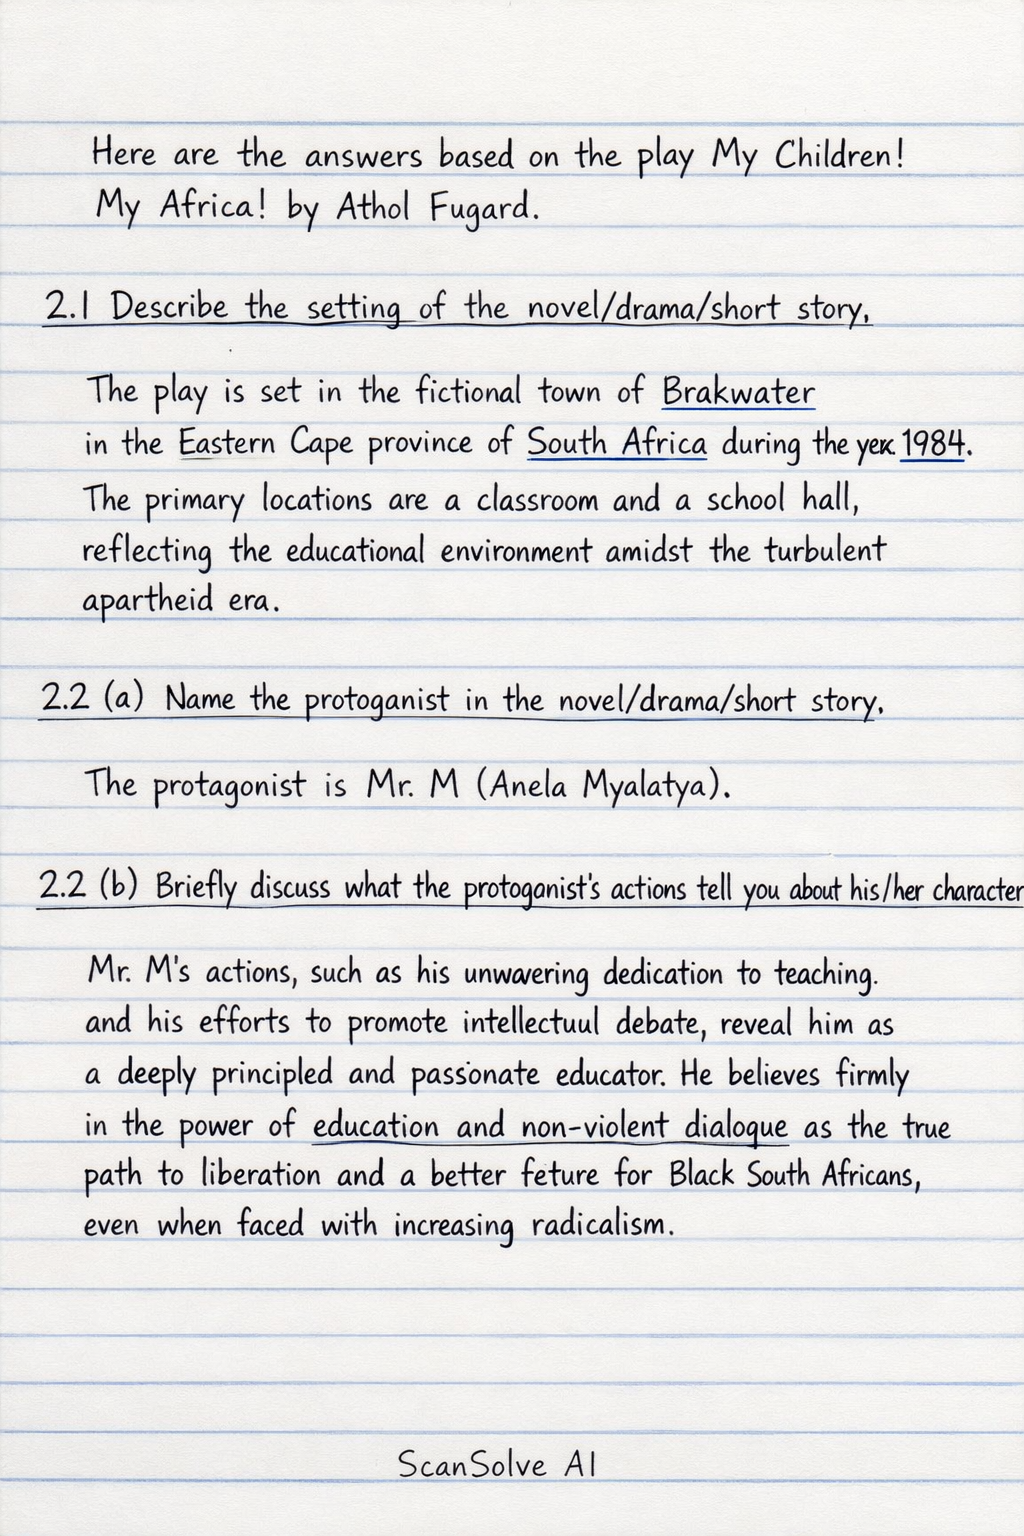 Here are the answers based on the play My Children!
My Africa! by Athol Fugard.
2.1 Describe the setting of the novel/drama/short story.
The play is set in the fictional town of Brakwater
in the Eastern Cape province of South Africa during the yex 1984.
The primary locations are a classroom and a school hall,
reflecting the educational environment amidst the turbulent
apartheid era.
2.2 (a) Name the protoganist in the novel/drama/short story.
The protagonist is Mr. M (Anela Myalatya).
2.2 (b) Briefly discuss what the protoganist's actions tell you about his/her character
Mr. M's actions, such as his unwavering dedication to teaching.
and his efforts to promote intellectuul debate, reveal him as
a deeply principled and passionate educator. He believes firmly
in the power of education and non-violent dialogue as the true
path to liberation and a better feture for Black South Africans,
even when faced with increasing radicalism.
ScanSolve AI